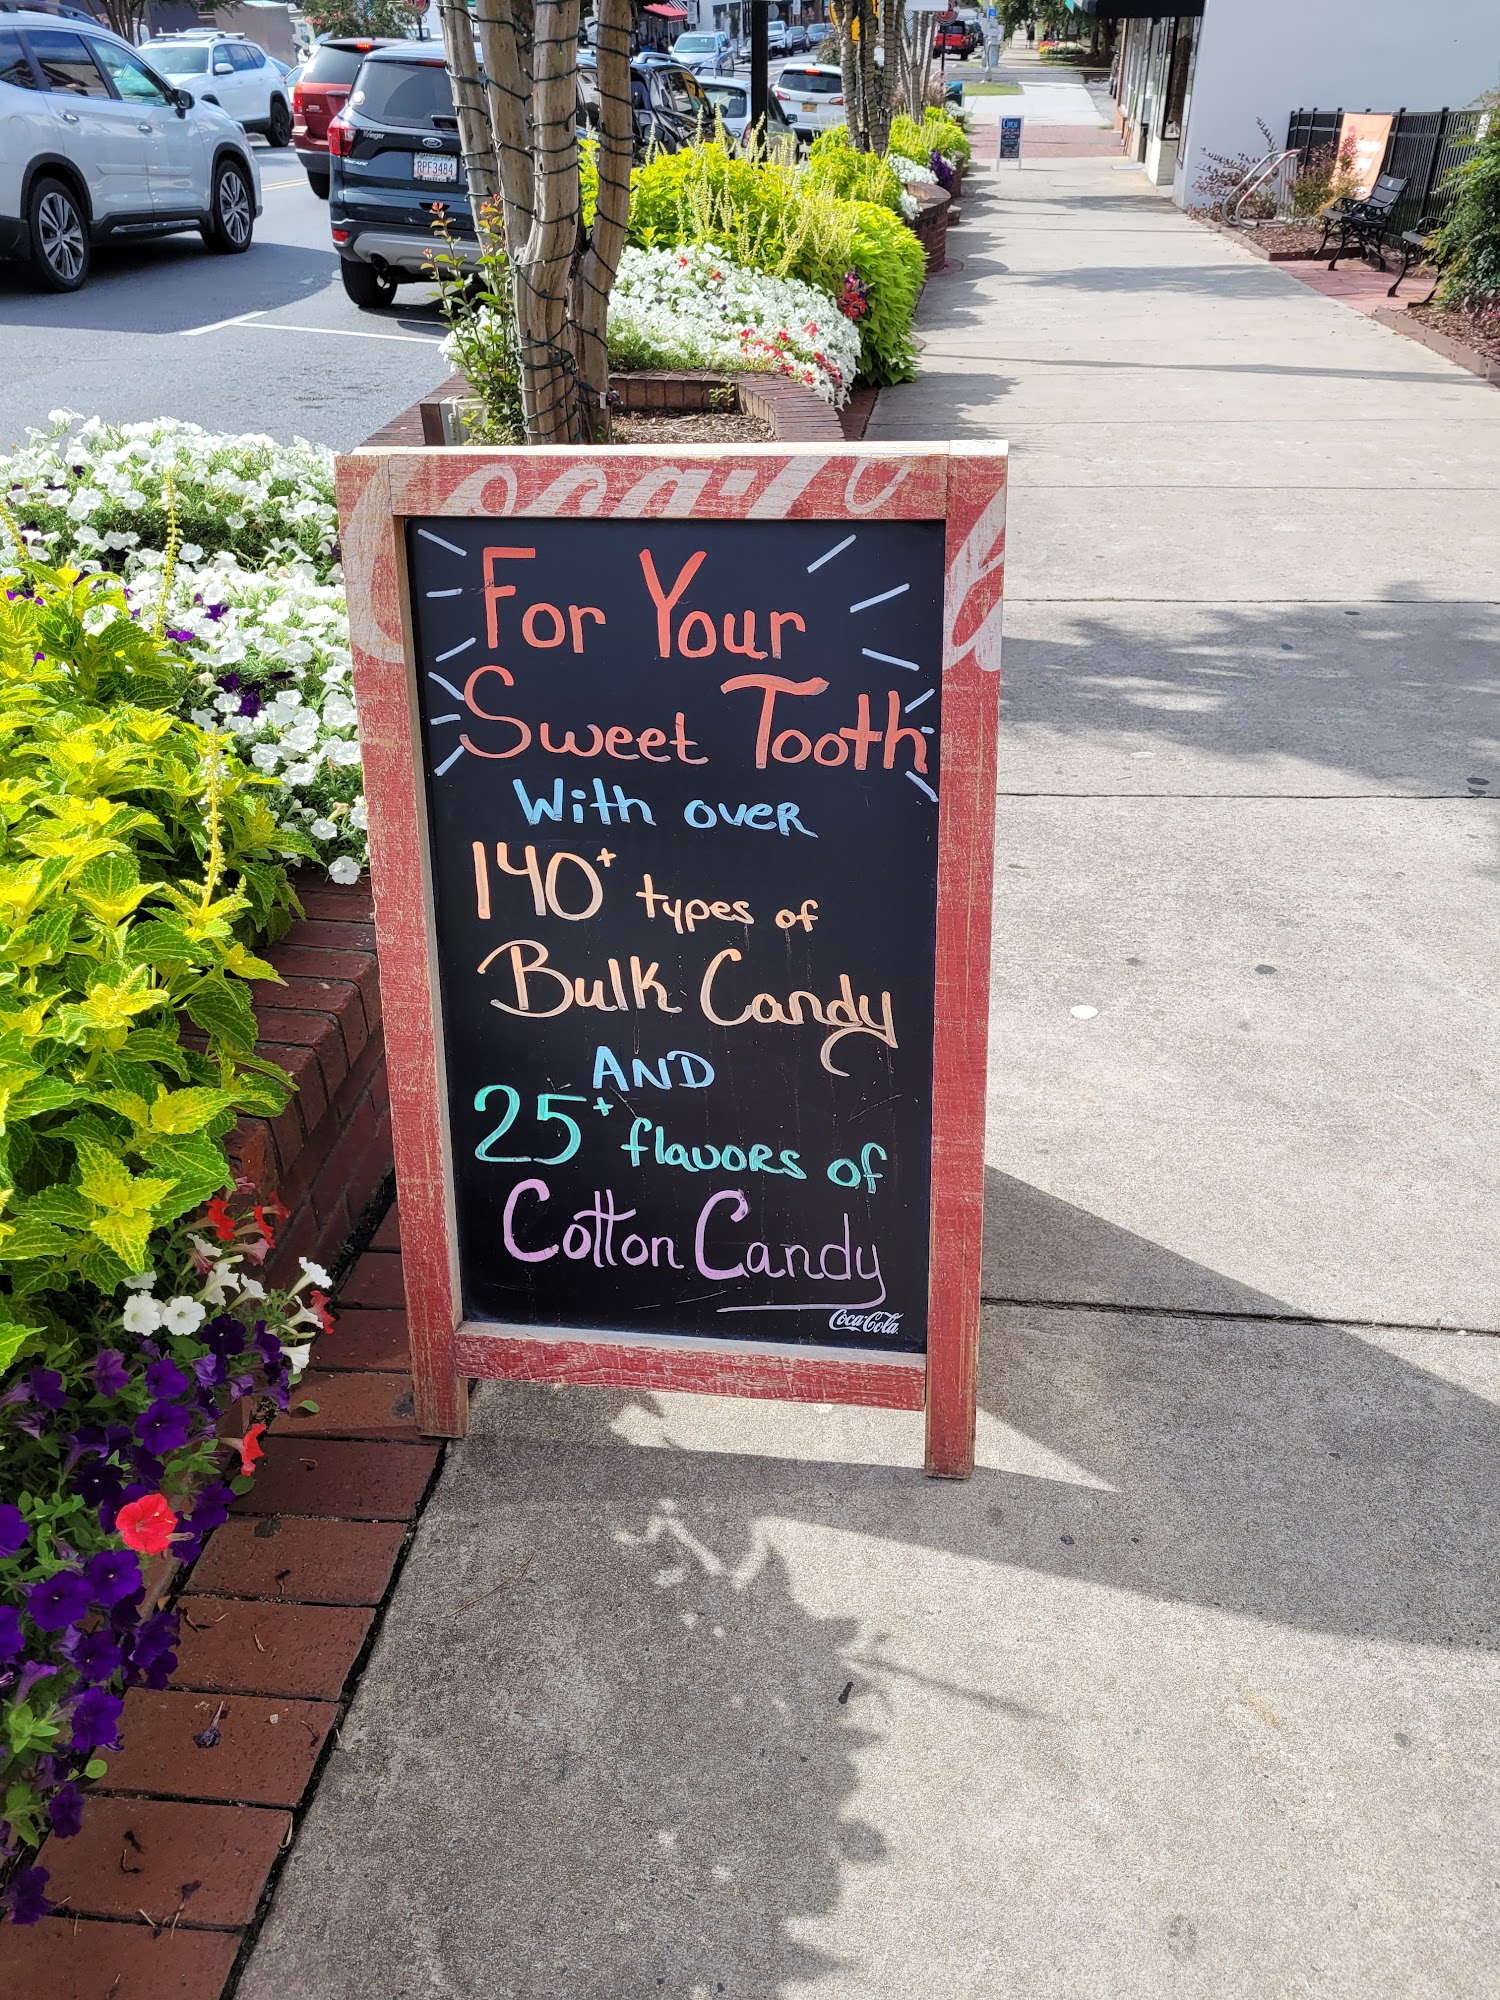 Krieger
RPF3484
Coca-Cola
For Your
Sweet Tooth
With over
140+ types of
Bulk Candy
AND
25+ flavors of
Cotton Candy
Coca-Cola